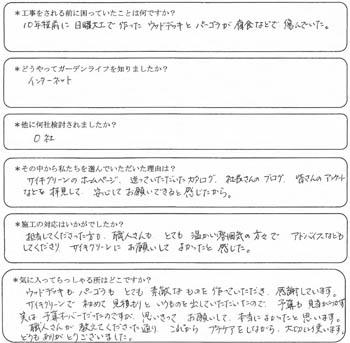 *工事をされる前に困っていたことは何ですか?
10年程前に 日曜大工で作った ウッドデッキと パーゴラが 腐食などで 傷んでいた。
*どうやってガーデンライフを知りましたか?
インターネット
*他に何社検討されましたか?
0社
*その中から私たちを選んでいただいた理由は?
サイキグリーンの ホームページ、送っていただいたカタログ、社長さんの ブログ、皆さんのアンケート
などを 拝見して、安心して お願いできると 感じたから。
*施工の対応はいかがでしたか?
担当してくださった方も、職人さんも とても 温かい雰囲気の 方々で アドバイスなども
してくださり サイキグリーンに お願いして よかったと 感じた。
*気に入ってらっしゃる所はどこですか?
ウッドデッキも パーゴラも とても 素敵な ものを 作っていただき、感謝しています。
サイキグリーンで 初めて 見積もり というものを出していただいたので 予算も 見当がつかず
実は 予算オーバーだったのですが 思いきって お願いして 本当によかったと思います。
職人さんが 教えてくださった通り これから ケアをしながら、大切に使います。
どうもありがとうございました。